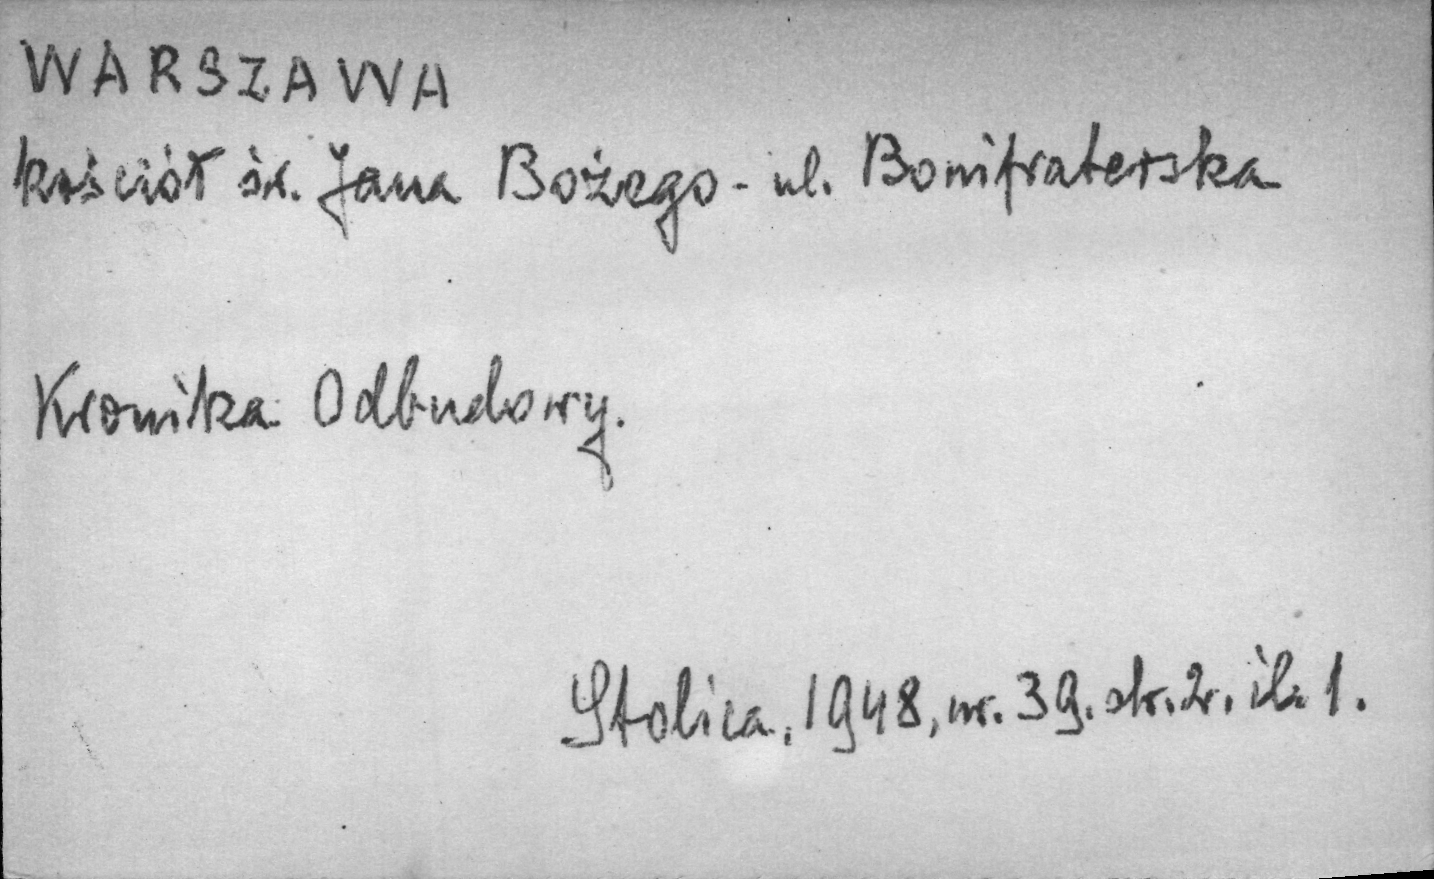 WARSZAWA
kościół św. Jana Bożego - ul. Bonifraterska
Kronika Odbudowy.
Stolica, 1948, nr. 39. str. 2. il. 1.